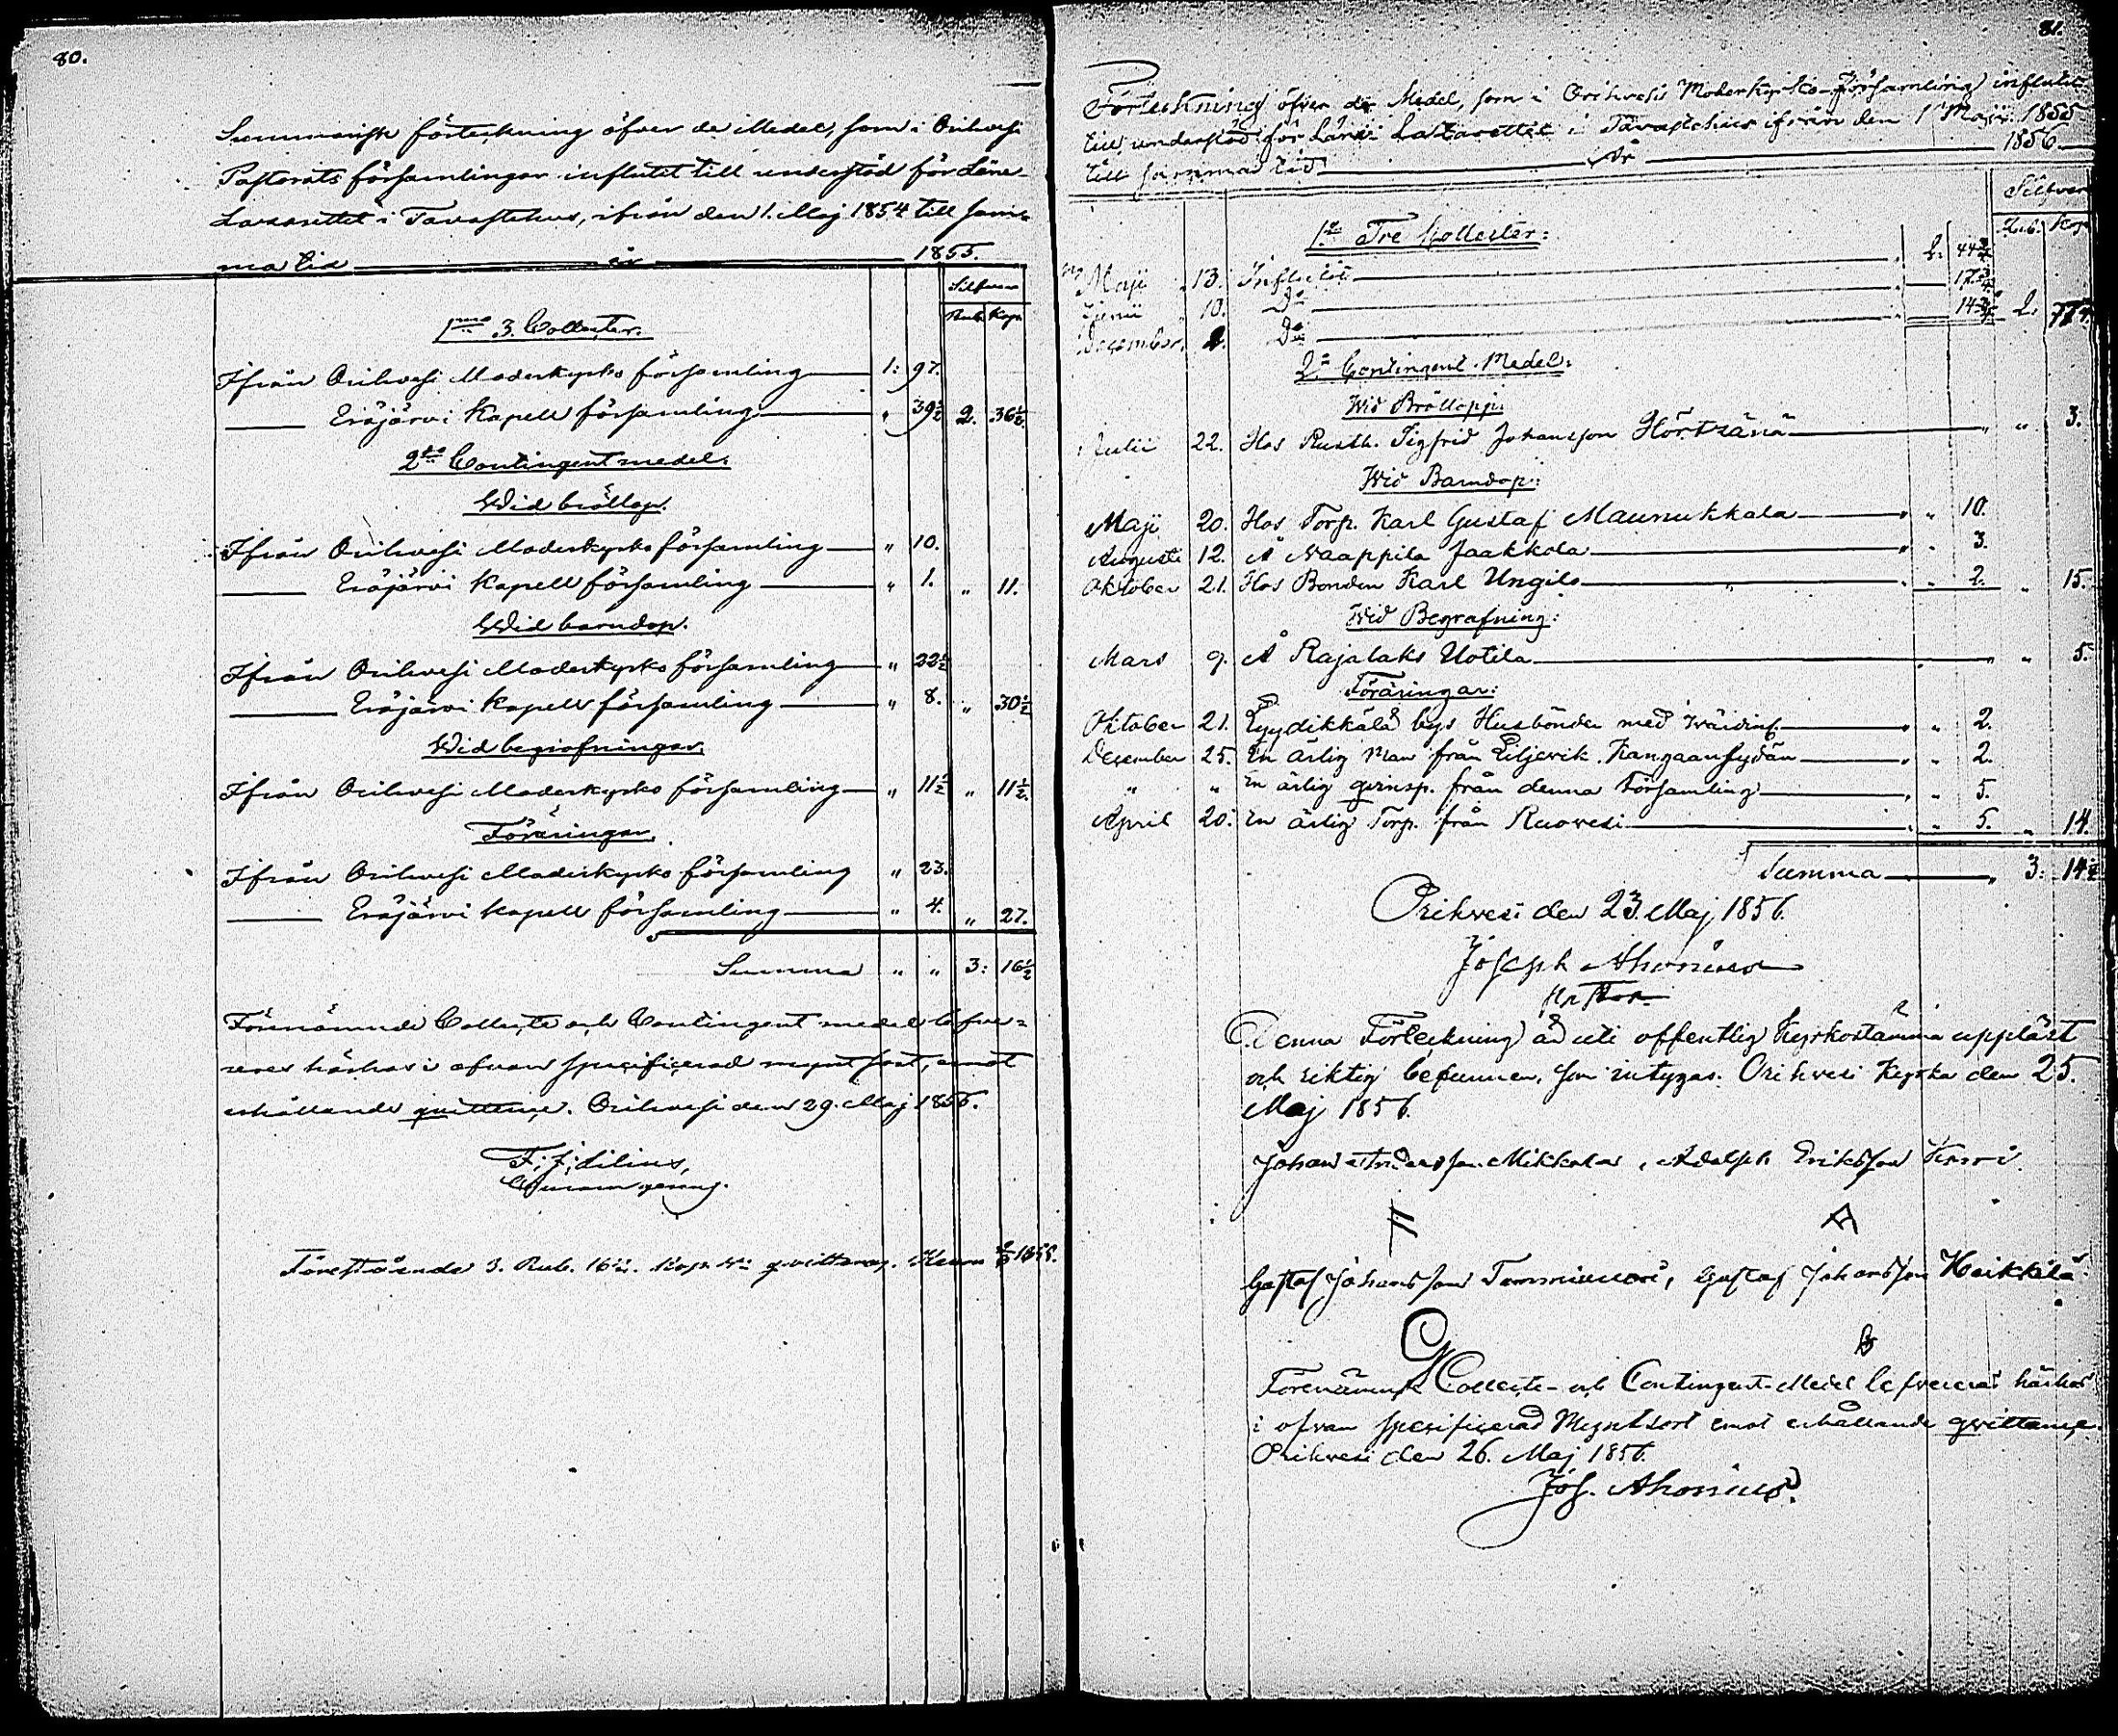 80.
Summarisk förteckning öfver de Medel, som i Orihvesi
Pastorats församlingar influtit till understöd för Läns
Lazarettet i Tavastehus, ifrån den 1. Maj 1854 till sam-
ma tid år 1855.
Silfver
Rub. Kop.
1mo 3. Collecter.
Ifrån Orihvesi Moderkyrko församling 1: 97.
Eräjärvi Kapell församling " 39½ 2. 36½.
2do Contingent medel.
Wid bröllop.
Ifrån Orihvesi Moderkyrko församling " 10.
Eräjärvi Kapell församling " 1. " 11.
Wid barndop.
Ifrån Orihvesi Moderkyrko församling " 22½
Eräjärvi Kapell församling " 8. " 30½
Wid begrafningar.
Ifrån Orihvesi Moderkyrko församling " 11½ " 11½.
Föräringar.
Ifrån Orihvesi Moderkyrko församling " 23.
Eräjärvi Kapell församling " 4. " 27.
Summa " " 3: 16½
Förenämnde Collecte och Contingent medel lefve-
reras härhos i ofvan specificerad mynt sort, emot
erhållande quittence. Orihvesi den 29. Maj 1855.
F. J. Lilius,
Förestående 3. Rub. 16½ Kop. Sr qvitteras. 1855.
81.
Förteckning öfver de Medel, som i Orihvesi Moderkyrko Församling influtit
till understöd för Läns Lazarettet i Tavastehus ifrån den 1 Maji 1855
till samma tid År 1856
Silfver
Rub. Kop.
1o Tre Collecter:
Maji 13. Influtit 2. 44¾
Junii 10. Do 17¾
December Do 14¾ 2. 77¼
2o Contingent Medel:
Wid Bröllop:
Julii 22. Hos Rusth. Sigfrid Johansson Hörtsänä " " 3.
Wid Barndop:
Maji 20. Hos Torp. Karl Gustaf Maunukkala " " 10.
Augusti 12. Å Naappila Jaakkola " " 3.
Oktober 21. Hos Bonden Karl Ungilo " " 2. " 15.
Wid Begrafning:
Mars 9. Å Rajalaks Uotila " " 5.
Föräringar:
Oktober 21. Lyydikkälä bys Husbönder med " " 2.
December 25. En ärlig Man från Liljevik. Kangaansydän " " 2.
" " En ärlig qvinsp. från denna Församling " " 5.
April 20. En ärlig Torp. från Ruovesi " " 5. " 14.
Summa " 3: 14¼
Orihvesi den 23. Maj 1856.
Joseph Ahonius
Denna Förteckning är uti offentlig Kyrkostämma uppläst
och riktig befunnen, som intygas. Orihvesi Kyrka den 25.
Maj 1856.
Johan Andersson Mikkola, Adolph Eriksson
Gustaf Johansson Tamminiemi, Gustaf Johansson Heikkilä.
Förenämnde Collecte- och Contingent-Medel lefvereras härhos
i ofvan specificerad Myntsort emot erhållande qvittance.
Orihvesi den 26. Maj 1856.
Jos. Ahonius.